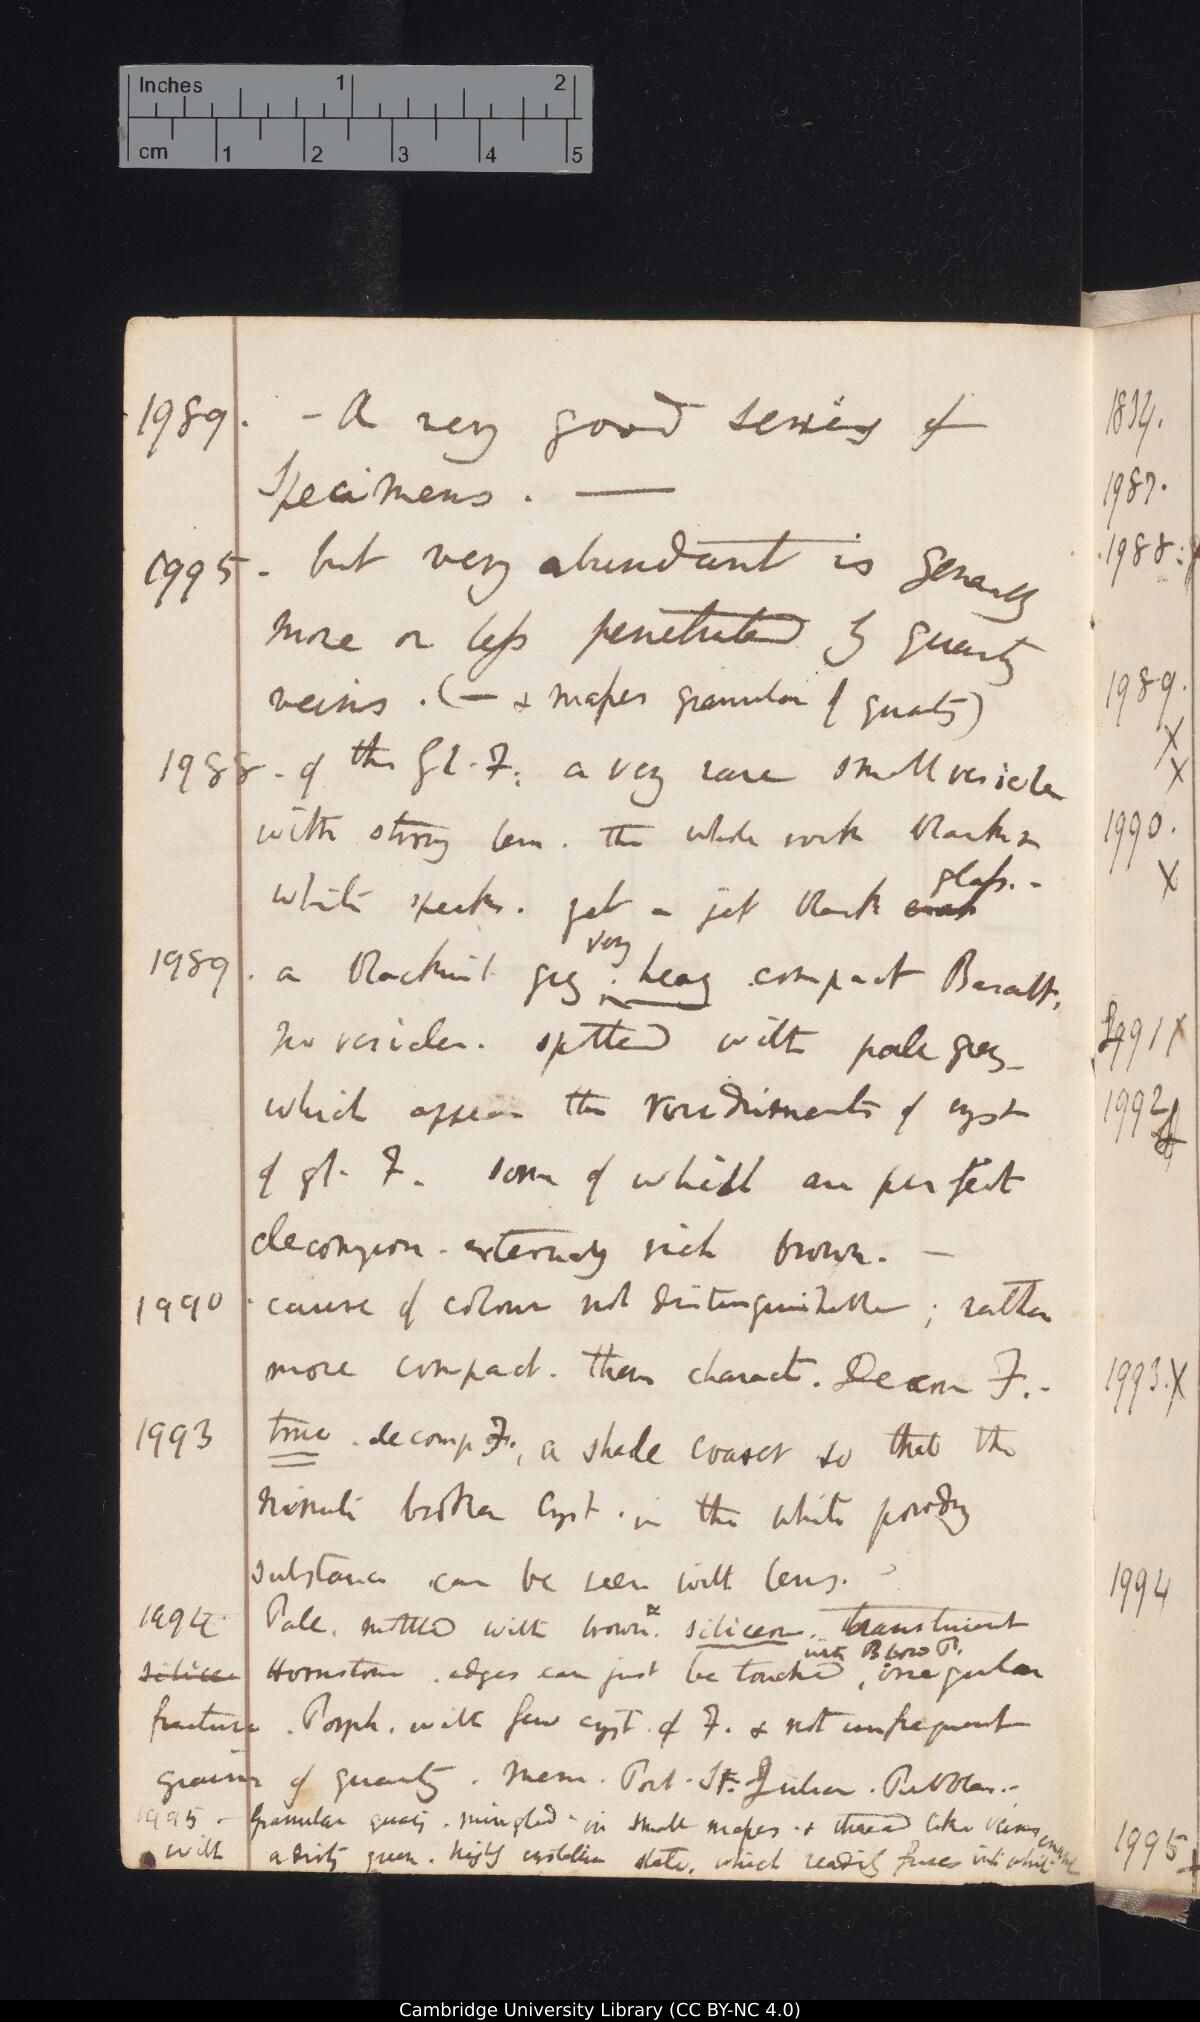 Inches 1 2
cm 1 2 3 4 5
1989. - A very good series of
Specimens. —
1995 - but very abundant is generally
more or less penetrated by quartz
veins. (— & masses granular of quartz)
1988 - of the Gl. F; a very rare small vesicles
with strong lens. the whole rock blackish
white specks. gets a jet black
glass. -
very
1989. a blackish grey; heavy compact Basalt,
no vesicles. spotted with pale grey
which appear the rudiments of cryst
of gl. F. some of which are perfect
decompos. externally rich brown. —
1990 cause of colour not distinguishable; rather
more compact. than charact. Decom F. -
1993 true decomp F., a shade coarser so that the
minute broken Cryst. in the white powdry
substance can be seen with lens.
1994 Pale. mottled with brown. siliceous. translucent
with Blow P.
silicee Hornstone. edges can just be touched, irregular
fracture. Porph. with few cryst of F. & not unfrequent
grains of quartz. Mem. Port. St. Julian. Pebbles. -
1995 - Granular quartz. mingled in small masses & thread like veins
with a dirty green. highly crystalline slate. which readily fuses into white
enamel
1834.
1987.
1988:
1989.
X
X
1990.
X
1991 X
1992
1993. X
1994
1995
Cambridge University Library (CC BY-NC 4.0)